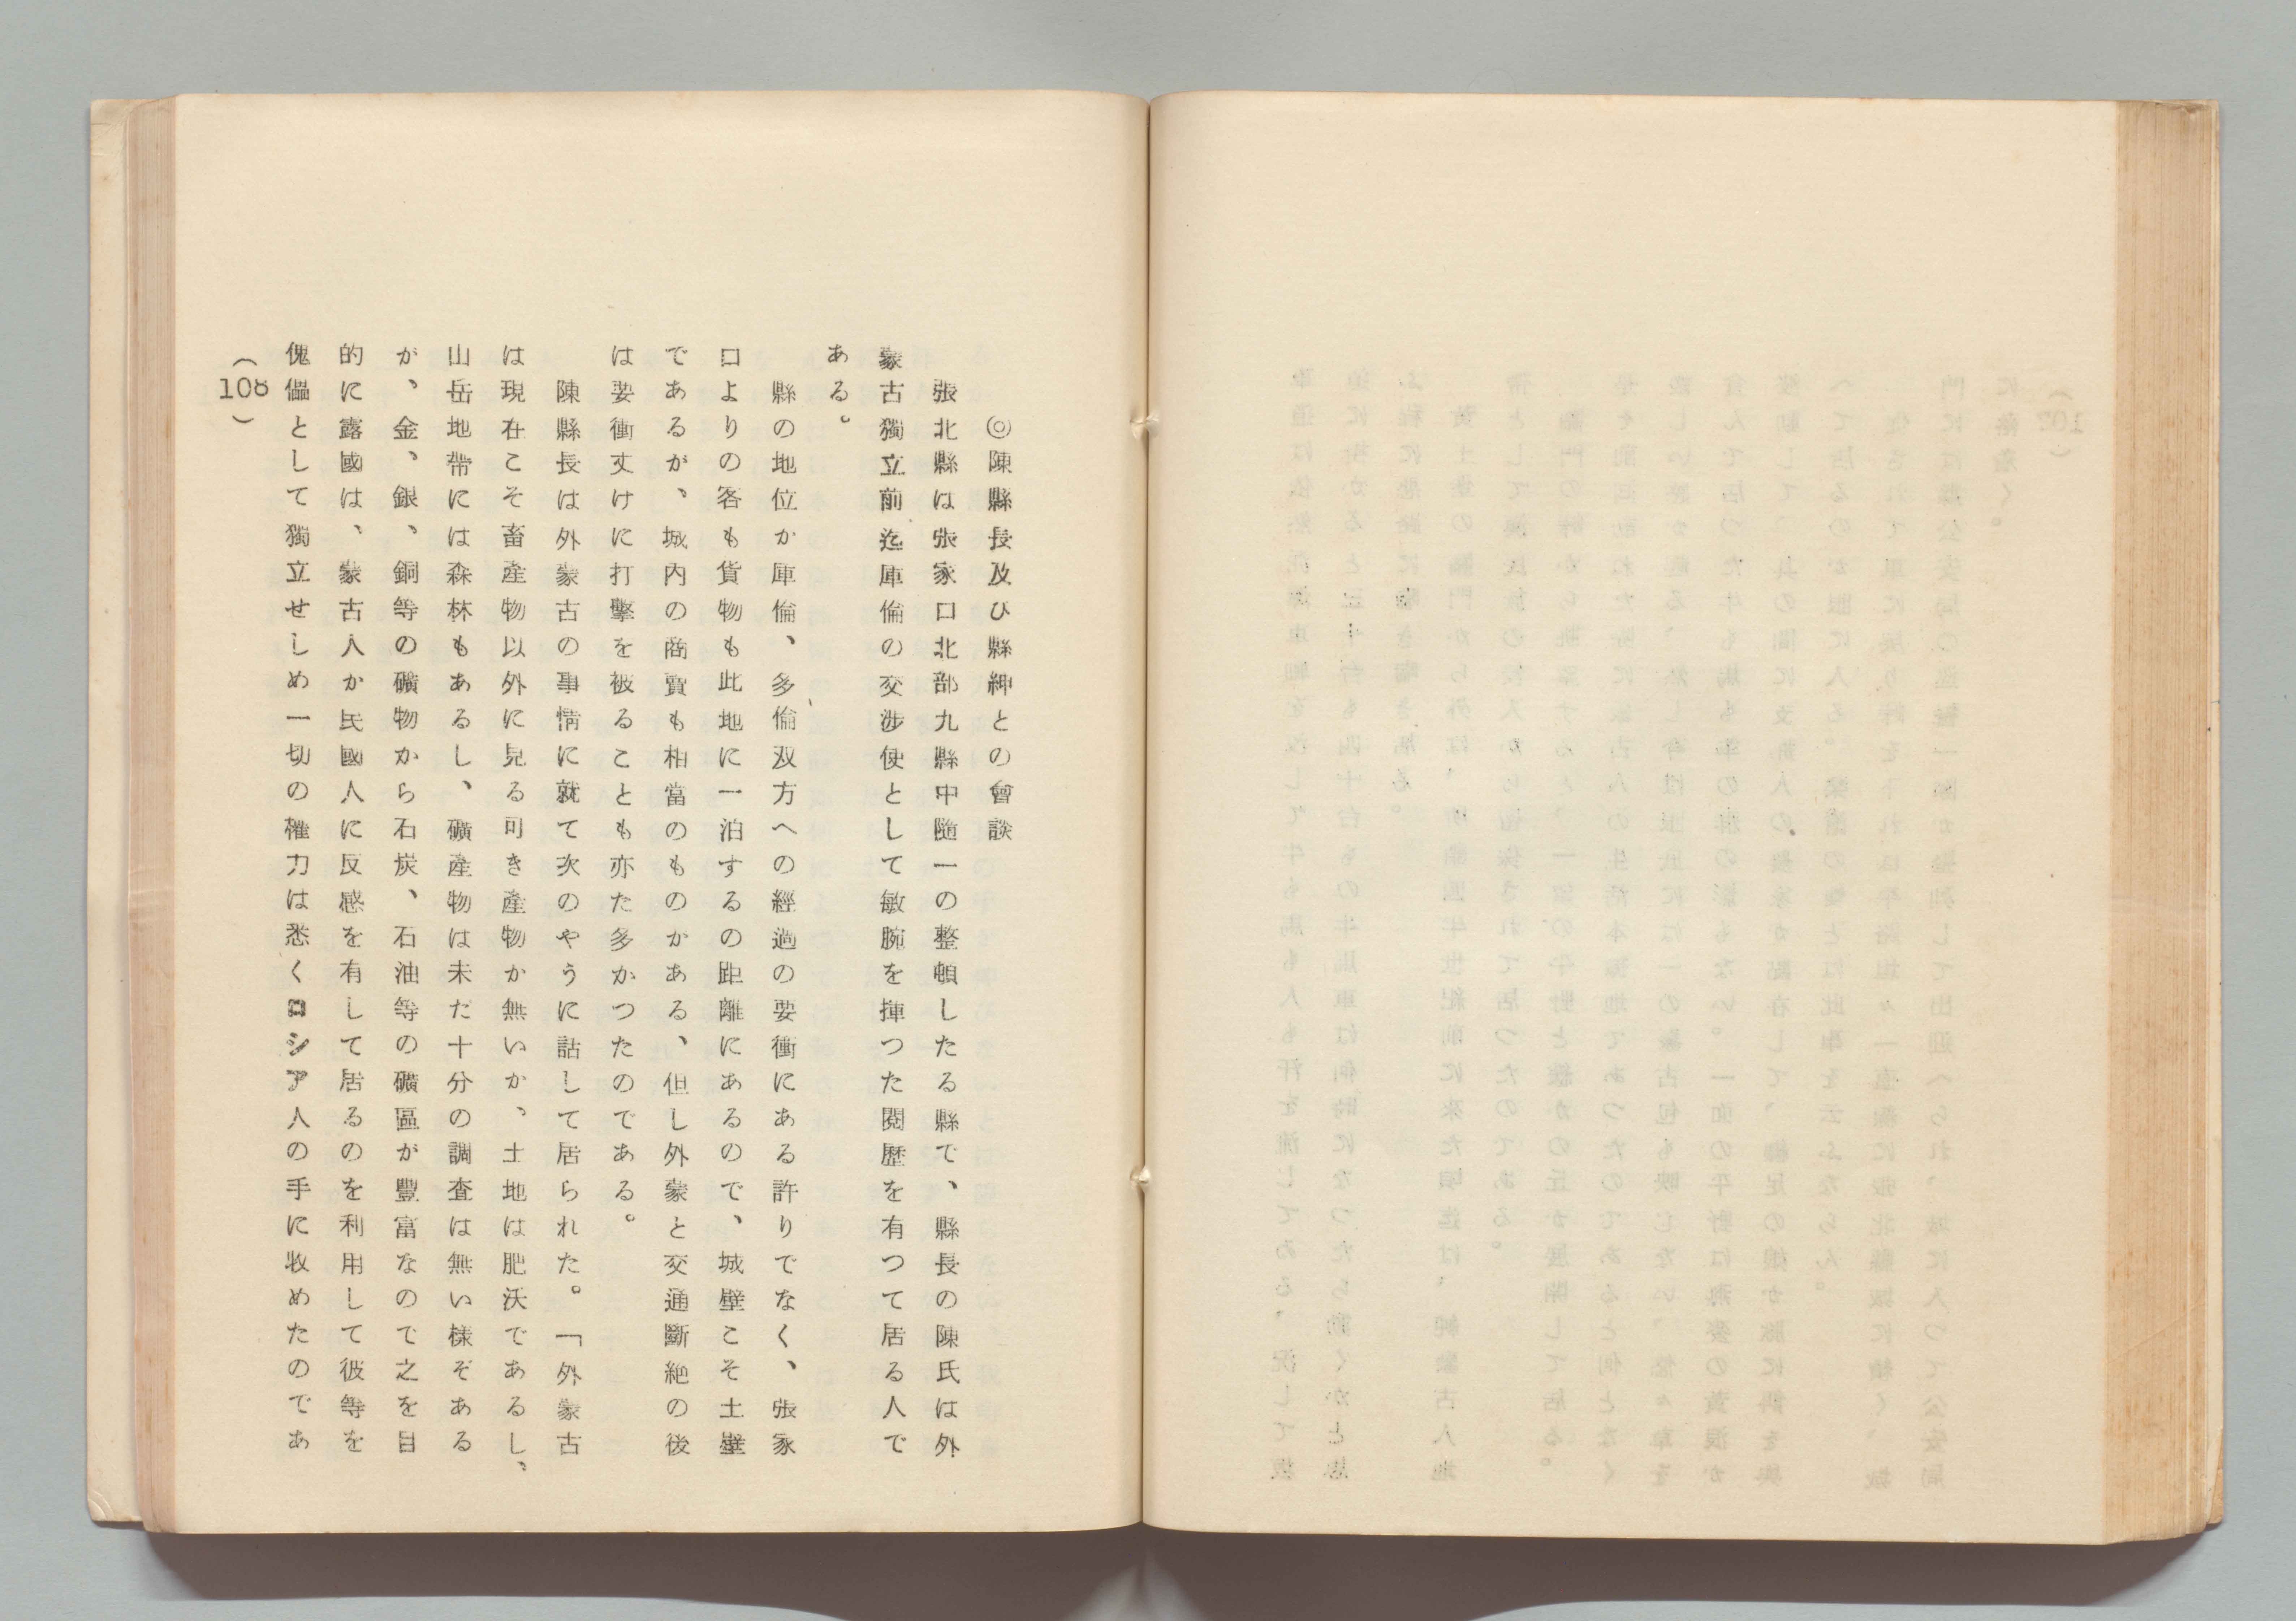 ◎陳縣長及ひ縣紳との會談
張北縣は張家口北部九縣中隨一の整頓したる縣で、縣長の陳氏は外
蒙古獨立前迄庫倫の交渉使として敏腕を揮つた閲歴を有つて居る人で
ある。
縣の地位か庫倫、多倫双方への經過の要衝にある許りでなく、張家
口よりの客も貨物も此地に一泊するの距離にあるので、城壁こそ土壁
であるが、城内の商賈も相當のものかある、但し外蒙と交通斷絶の後
は要衝丈けに打擊を被ることも亦た多かつたのである。
陳縣長は外蒙古の事情に就て次のやうに話して居られた。「外蒙古
は現在こそ畜産物以外に見る可き産物か無いか、土地は肥沃であるし、
山岳地帶には森林もあるし、礦産物は未だ十分の調査は無い樣ぞある
が、金、銀、銅等の礦物から石炭、石油等の礦區が豐富なので之を目
的に露國は、蒙古人か民國人に反感を有して居るのを利用して彼等を
傀儡として獨立せしめ一切の權力は悉くロシア人の手に收めたのであ
(108)